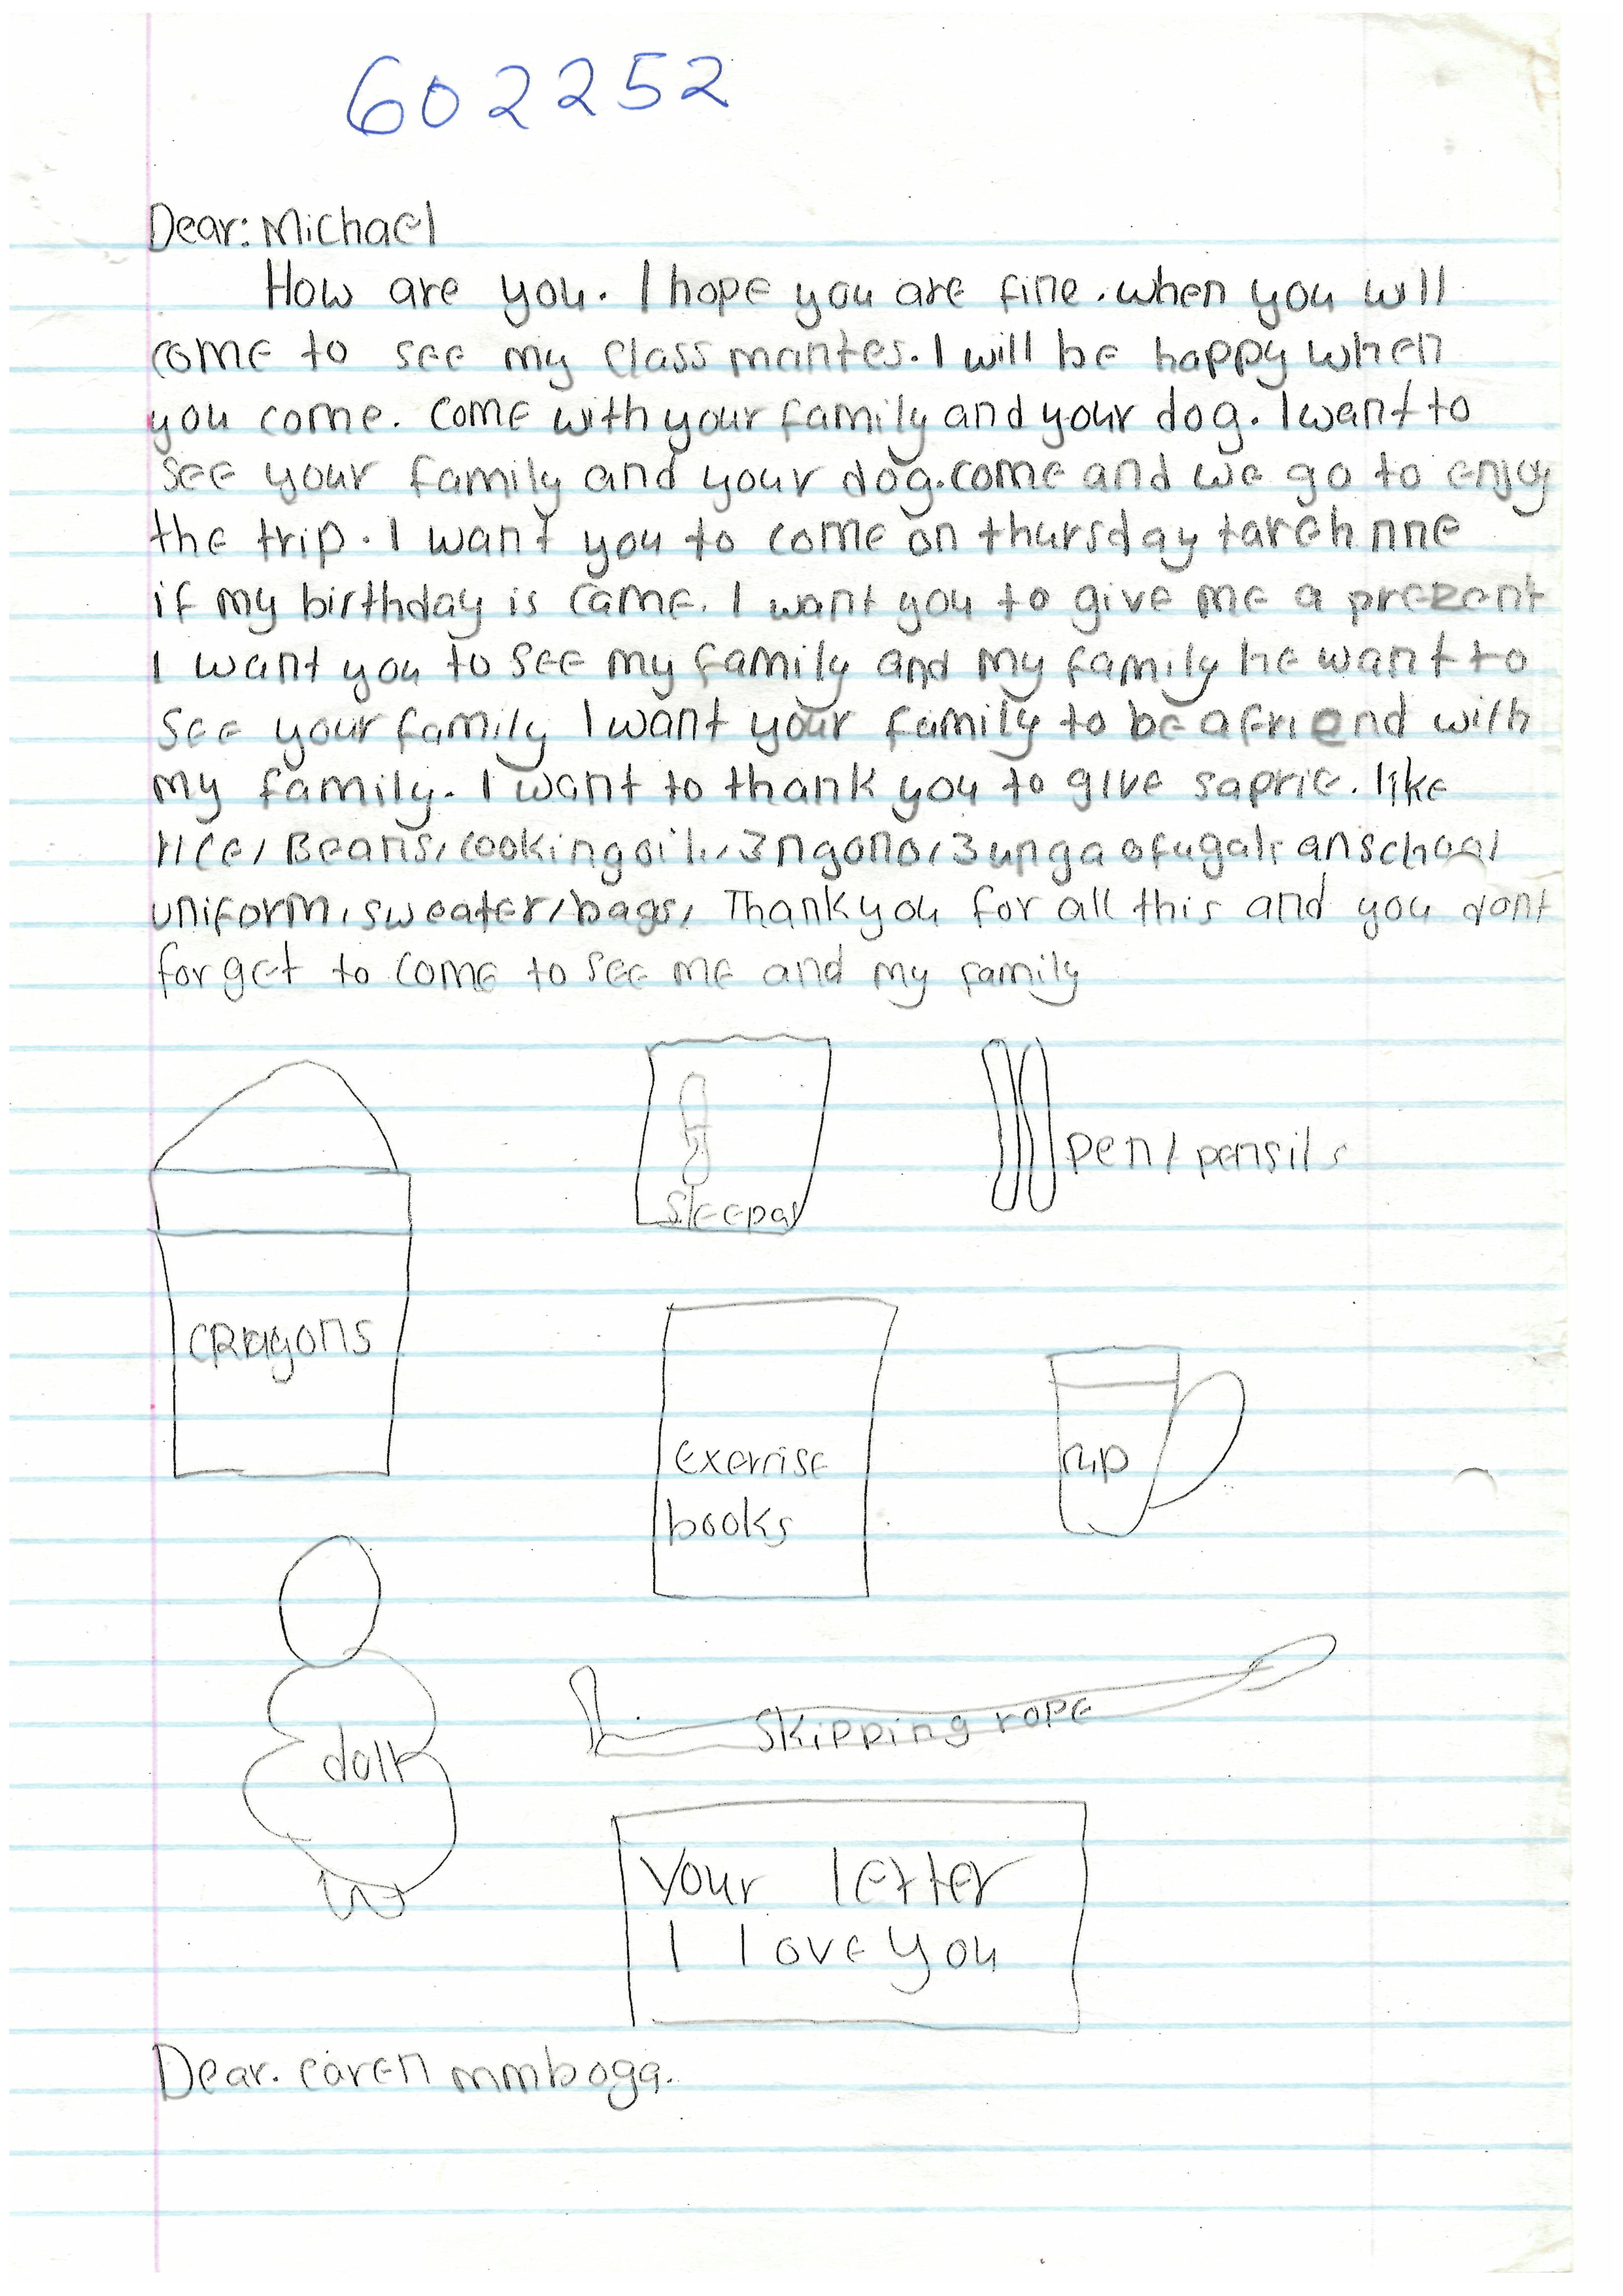 602252
Dear: Michael
How are you. I hope you are fine. when you will
come to see my class mantes. I will be happy when
you come. come with your family and your dog. I want to
see your family and your dog. come and we go to enjoy
the trip. I want you to come on thursday tareh nne
if my birthday is came. I want you to give me a prezent
I want you to see my family and my family he want to
see your family I want your family to be a friend with
my family. I want to thank you to give saprie. like
rice, Beans, cooking oil, 3 ngono, 3 unga of ugali an school
uniform, sweater, bags, Thank you for all this and you dont
for get to come to see me and my family
sleepar
pen / pensils
cragons
exercise
books
cup
doll
skipping rope
Your letter
I love you
Dear. caren mmboga.